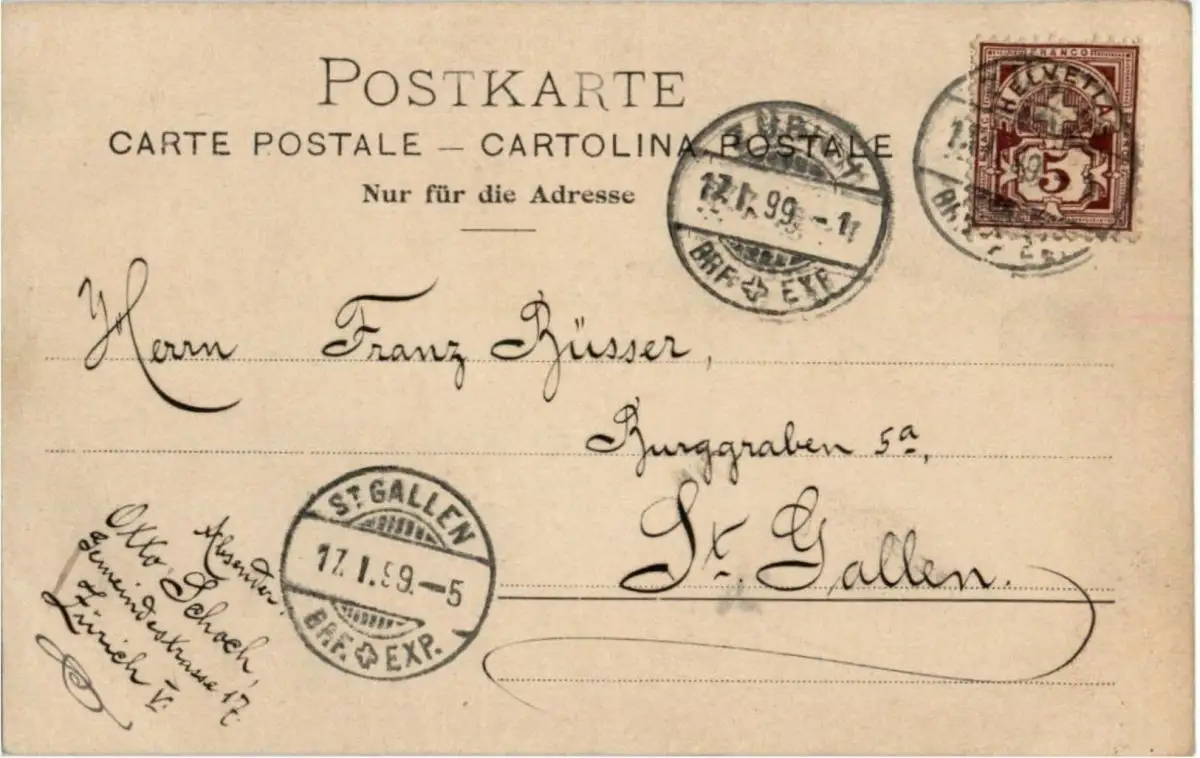 POSTKARTE
CARTE POSTALE — CARTOLINA POSTALE
Nur für die Adresse
ZÜRICH
17.I.99.-11
BRF. EXP.
FRANCO
HELVETIA
5
Herrn Franz Büsser,
Burggraben 5a,
St. Gallen.
ST. GALLEN
17.I.99.-5
BRF. EXP.
Absender:
Otto Schoch,
Gemeindestrasse 17
Zürich V.